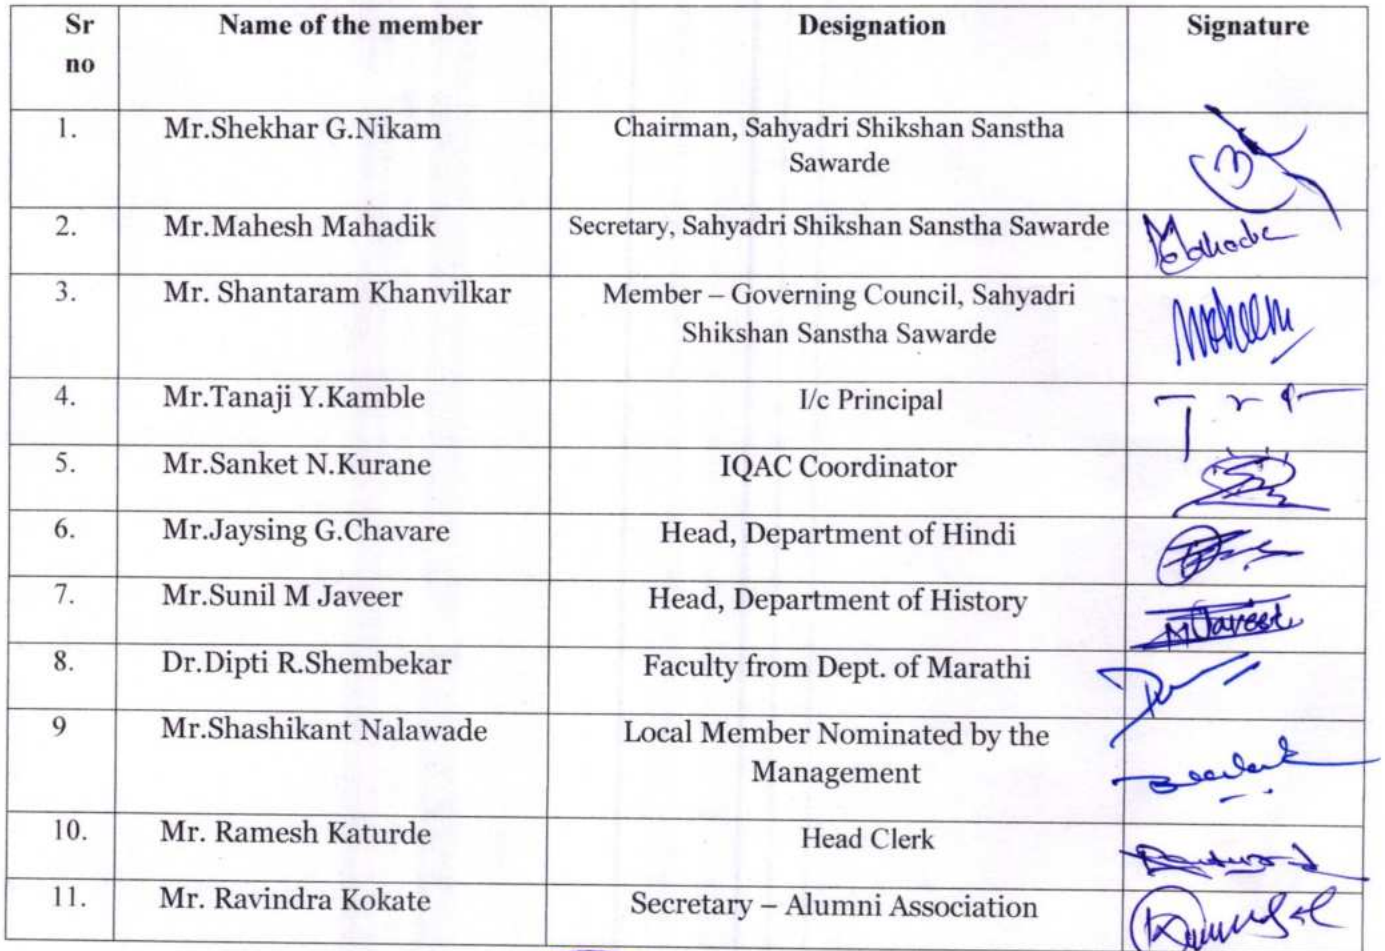 Sr no Name of the member Designation Signature
1. Mr.Shekhar G.Nikam Chairman, Sahyadri Shikshan Sanstha
Sawarde
2. Mr.Mahesh Mahadik Secretary, Sahyadri Shikshan Sanstha Sawarde
3. Mr. Shantaram Khanvilkar Member – Governing Council, Sahyadri
Shikshan Sanstha Sawarde
4. Mr.Tanaji Y.Kamble I/c Principal
5. Mr.Sanket N.Kurane IQAC Coordinator
6. Mr.Jaysing G.Chavare Head, Department of Hindi
7. Mr.Sunil M Javeer Head, Department of History
8. Dr.Dipti R.Shembekar Faculty from Dept. of Marathi
9 Mr.Shashikant Nalawade Local Member Nominated by the
Management
10. Mr. Ramesh Katurde Head Clerk
11. Mr. Ravindra Kokate Secretary – Alumni Association